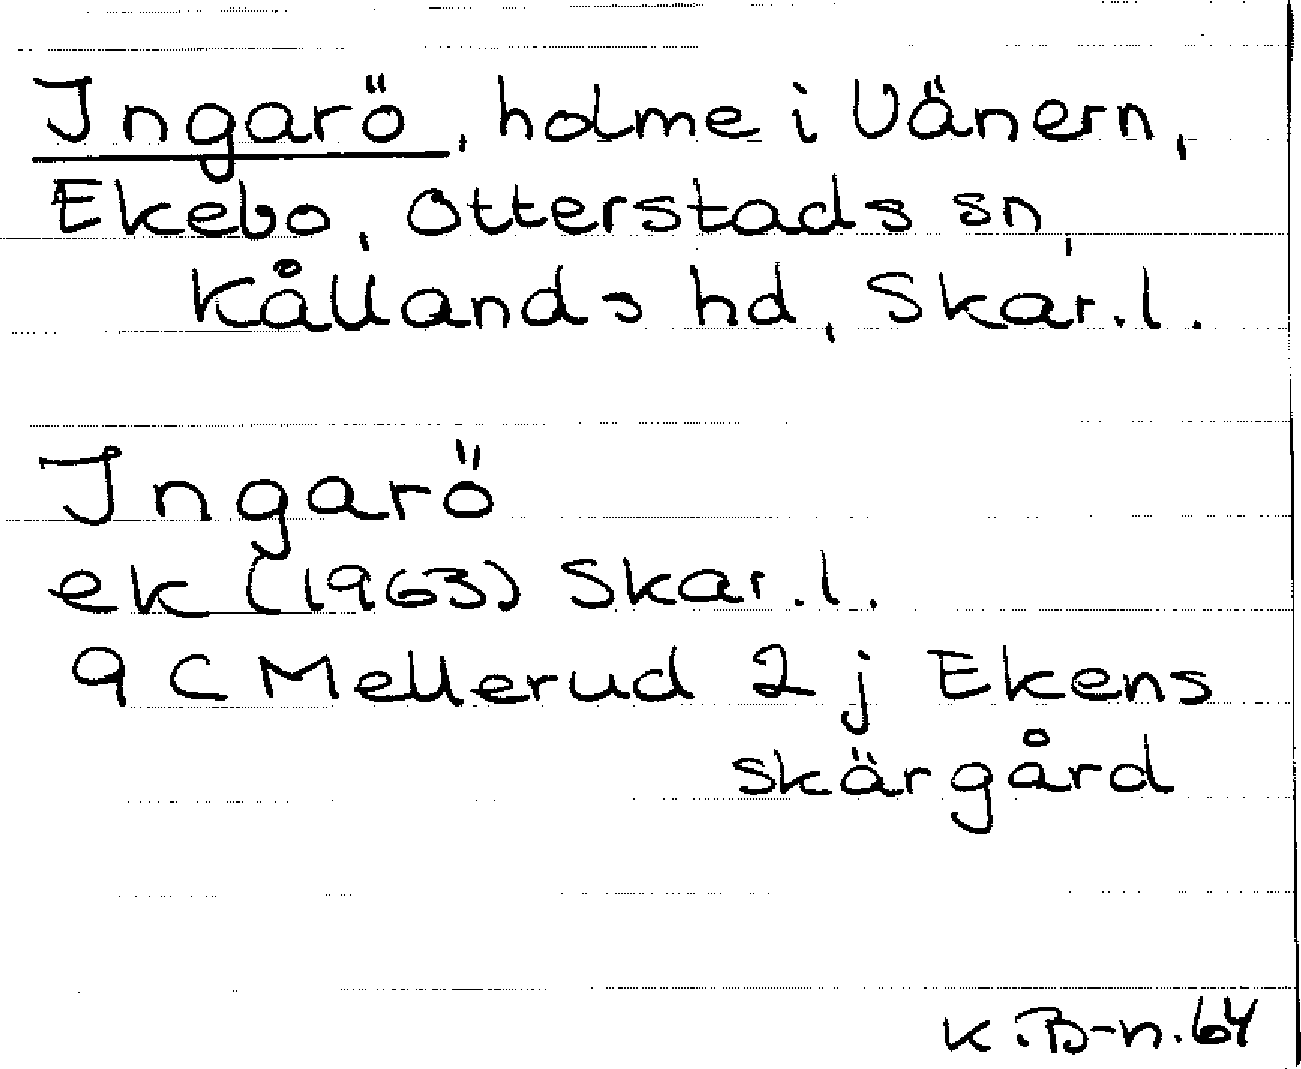 Ingarö, holme i Vänern,
Ekebo, Otterstads sn,
Kållands hd, Skar.l.
Ingarö
ek (1963) Skar.l.
9 C Mellerud 2 j Ekens
skärgård
K.B-n.64